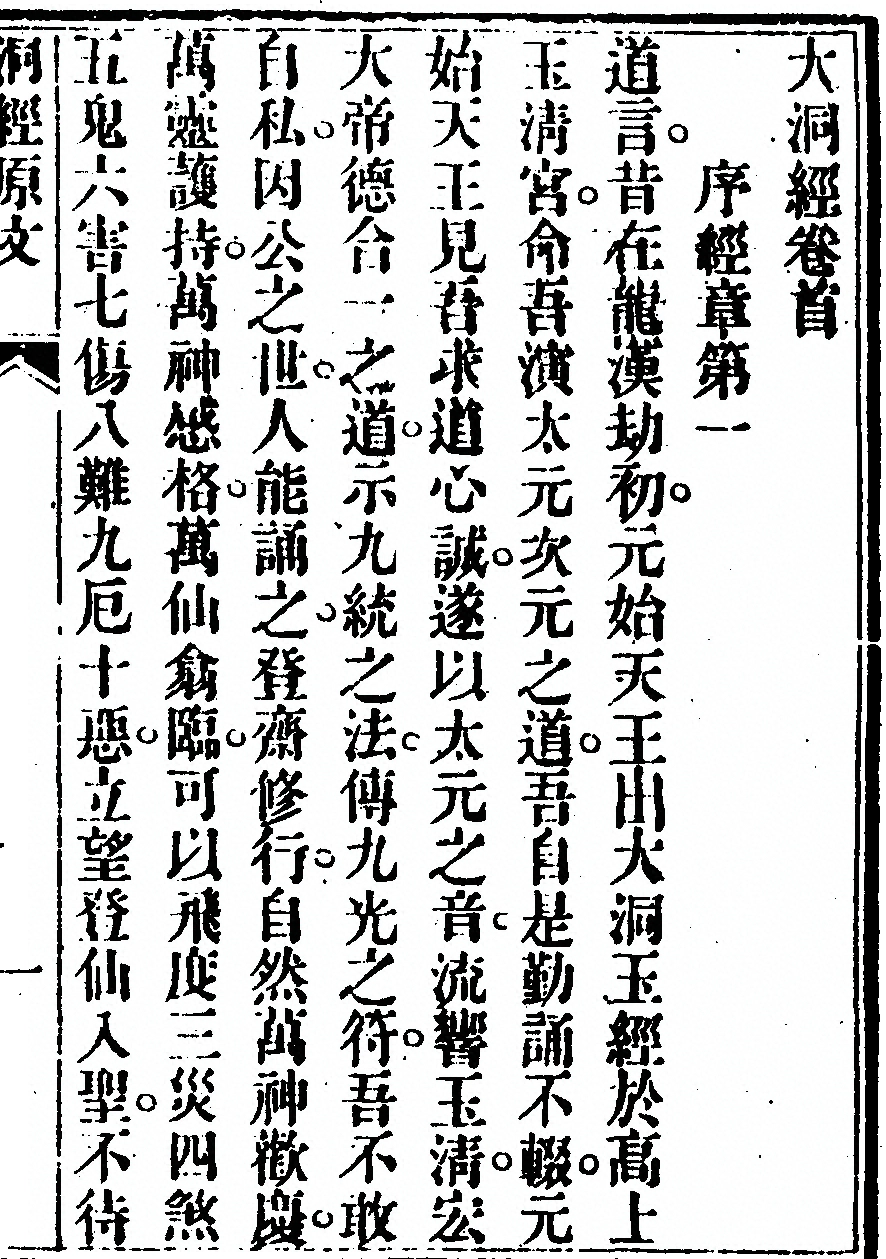 大洞經卷首
序經章第一
道言。昔在龍漢劫初。元始天王出大洞玉經於高上
玉清宮。命吾演太元次元之道。吾自是勤誦不輟。元
始天王見吾求道心誠。遂以太元之音。流響玉清。宏
大帝德合一之道。示九統之法。傳九光之符。吾不敢
自私。因公之世。人能誦之。登齋修行。自然萬神歡慶。
萬靈護持。萬神感格。萬仙翕臨。可以飛度三災四煞
五鬼六害七傷八難九厄十惡。立望登仙入聖。不待
洞經原文
一